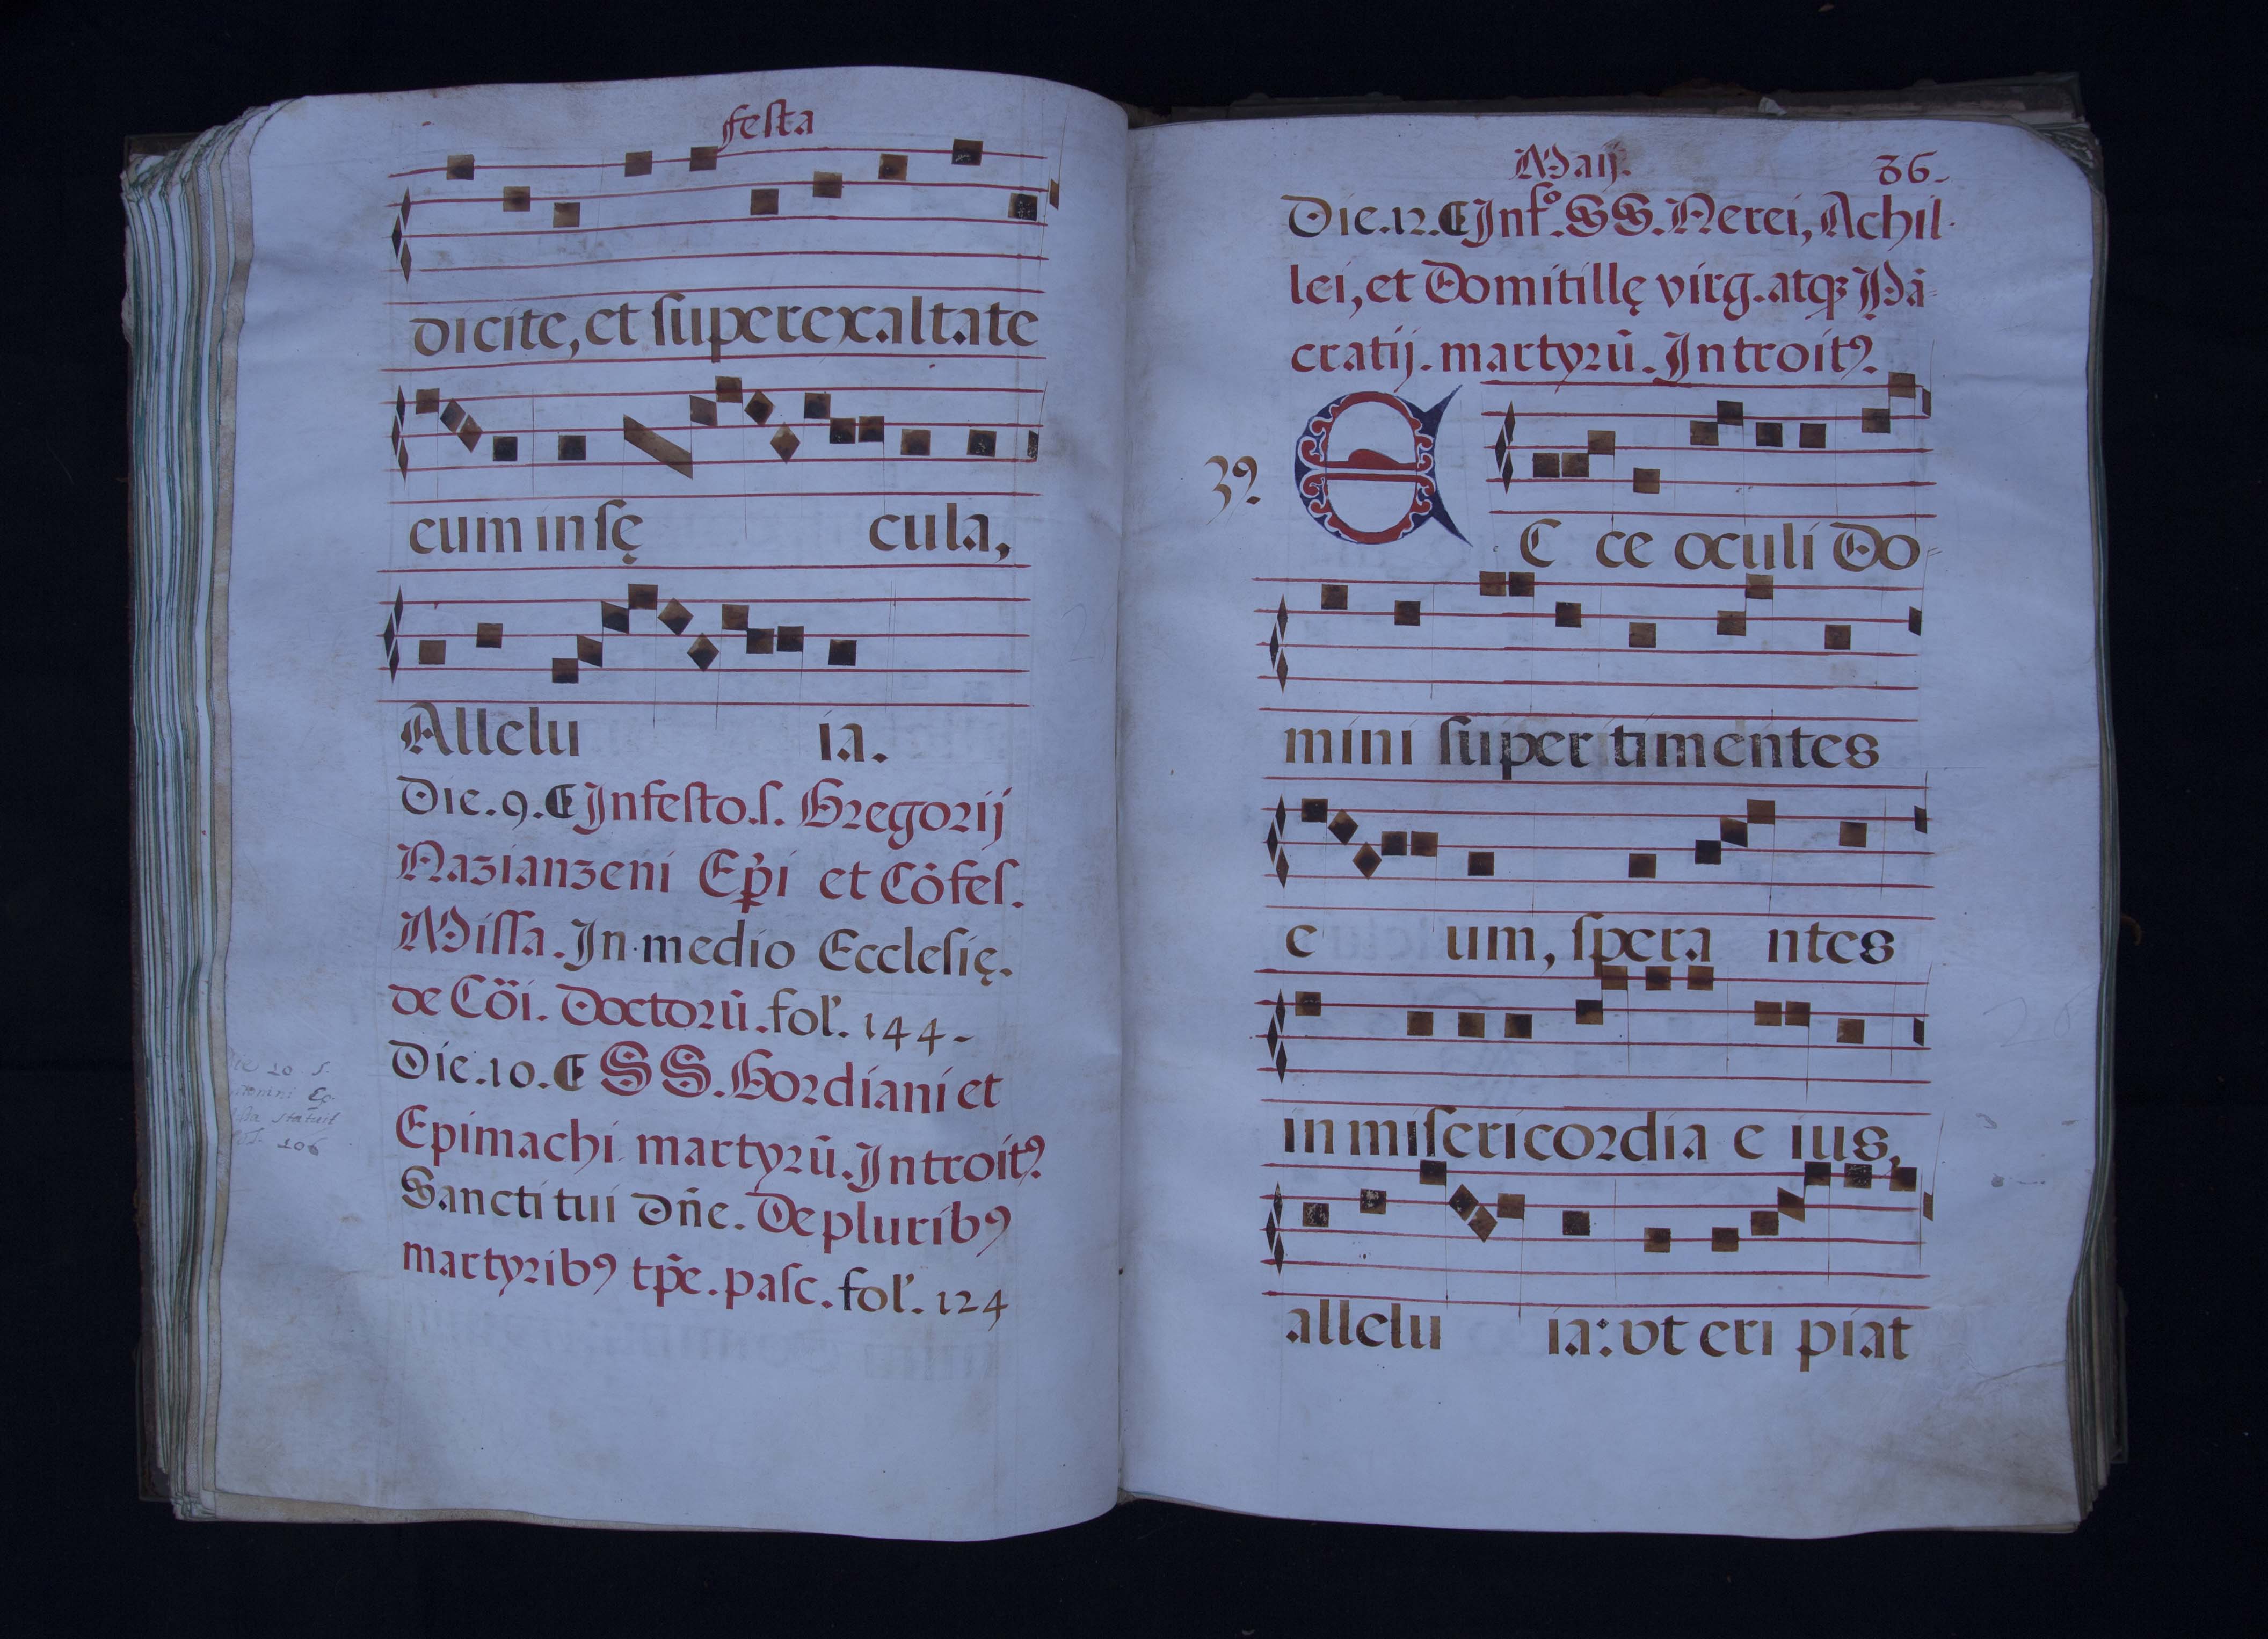 festa
dicite, et superexaltate
cum in sę cula,
Allelu ia.
Die. 9. In festo. s. Gregorij
Nazianzeni Ep̃i et Cõfes.
Missa. In medio Ecclesię.
de Cõi. Doctorũ. fol. 144-
Die. 10. SS. Gordiani et
Epimachi martyrũ. Introitꝰ
Sancti tui Dñe. De pluribꝰ
martyribꝰ tp̃e. pasc. fol. 124
10 S.
Ep.
statuit
106
Maij. 86.
Die. 12. In fº. SS. Nerei, Achil-
lei, et Domitillę virg. atqꝫ Pã-
cratij. martyrũ. Introitꝰ.
3ꝰ.
E C ce oculi Do-
mini super timentes
e um, spera ntes
in misericordia e ius,
allelu ia: vt eri piat